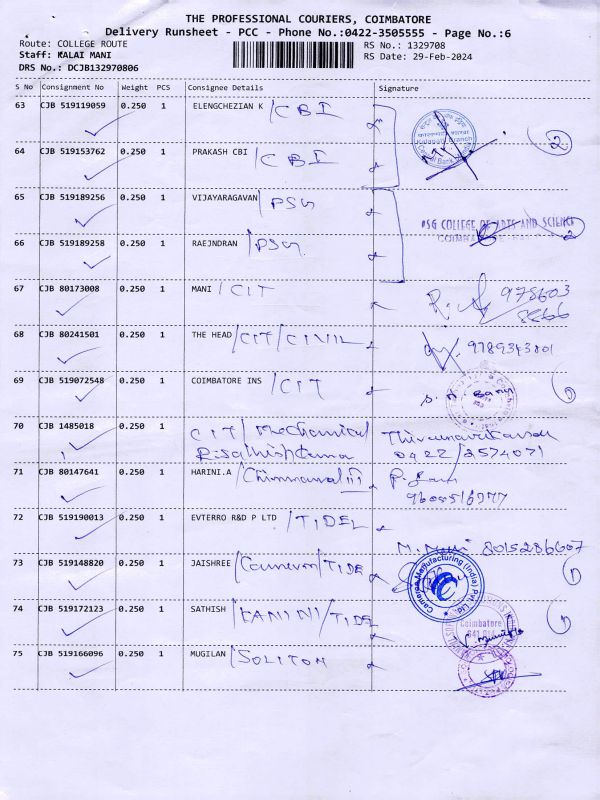 THE PROFESSIONAL COURIERS, COIMBATORE
Delivery Runsheet - PCC - Phone No.:0422-3505555 - Page No.:6
Route: COLLEGE ROUTE
RS No.: 1329708
Staff: KALAI MANI
RS Date: 29-Feb-2024
DRS No.: DCJB132970806
S No Consignment No Weight PCS Consignee Details Signature
63 CJB 519119059 0.250 1 ELENGCHEZIAN K /CBI
2
64 CJB 519153762 0.250 1 PRAKASH CBI /CBI
65 CJB 519189256 0.250 1 VIJAYARAGAVAN /PSG
PSG COLLEGE OF ARTS AND SCIENCE
2
66 CJB 519189258 0.250 1 RAEJNDRAN /PSG
67 CJB 80173008 0.250 1 MANI /CIT
975603
8866
68 CJB 80241501 0.250 1 THE HEAD /CIT/CIVIL
9789343801
69 CJB 519072548 0.250 1 COIMBATORE INS /CIT
70 CJB 1485018 0.250 1 CIT/Mechanical
0422/2574071
71 CJB 80147641 0.250 1 HARINI.A
72 CJB 519190013 0.250 1 EVTERRO R&D P LTD /TIDEL
8015286607
73 CJB 519148820 0.250 1 JAISHREE /TIDE
Cameron Manufacturing (India) Pvt. Ltd.
1
74 CJB 519172123 0.250 1 SATHISH /KANINI/TIDEL
Coimbatore
641 014
1
75 CJB 519166096 0.250 1 MUGILAN /SOLITON